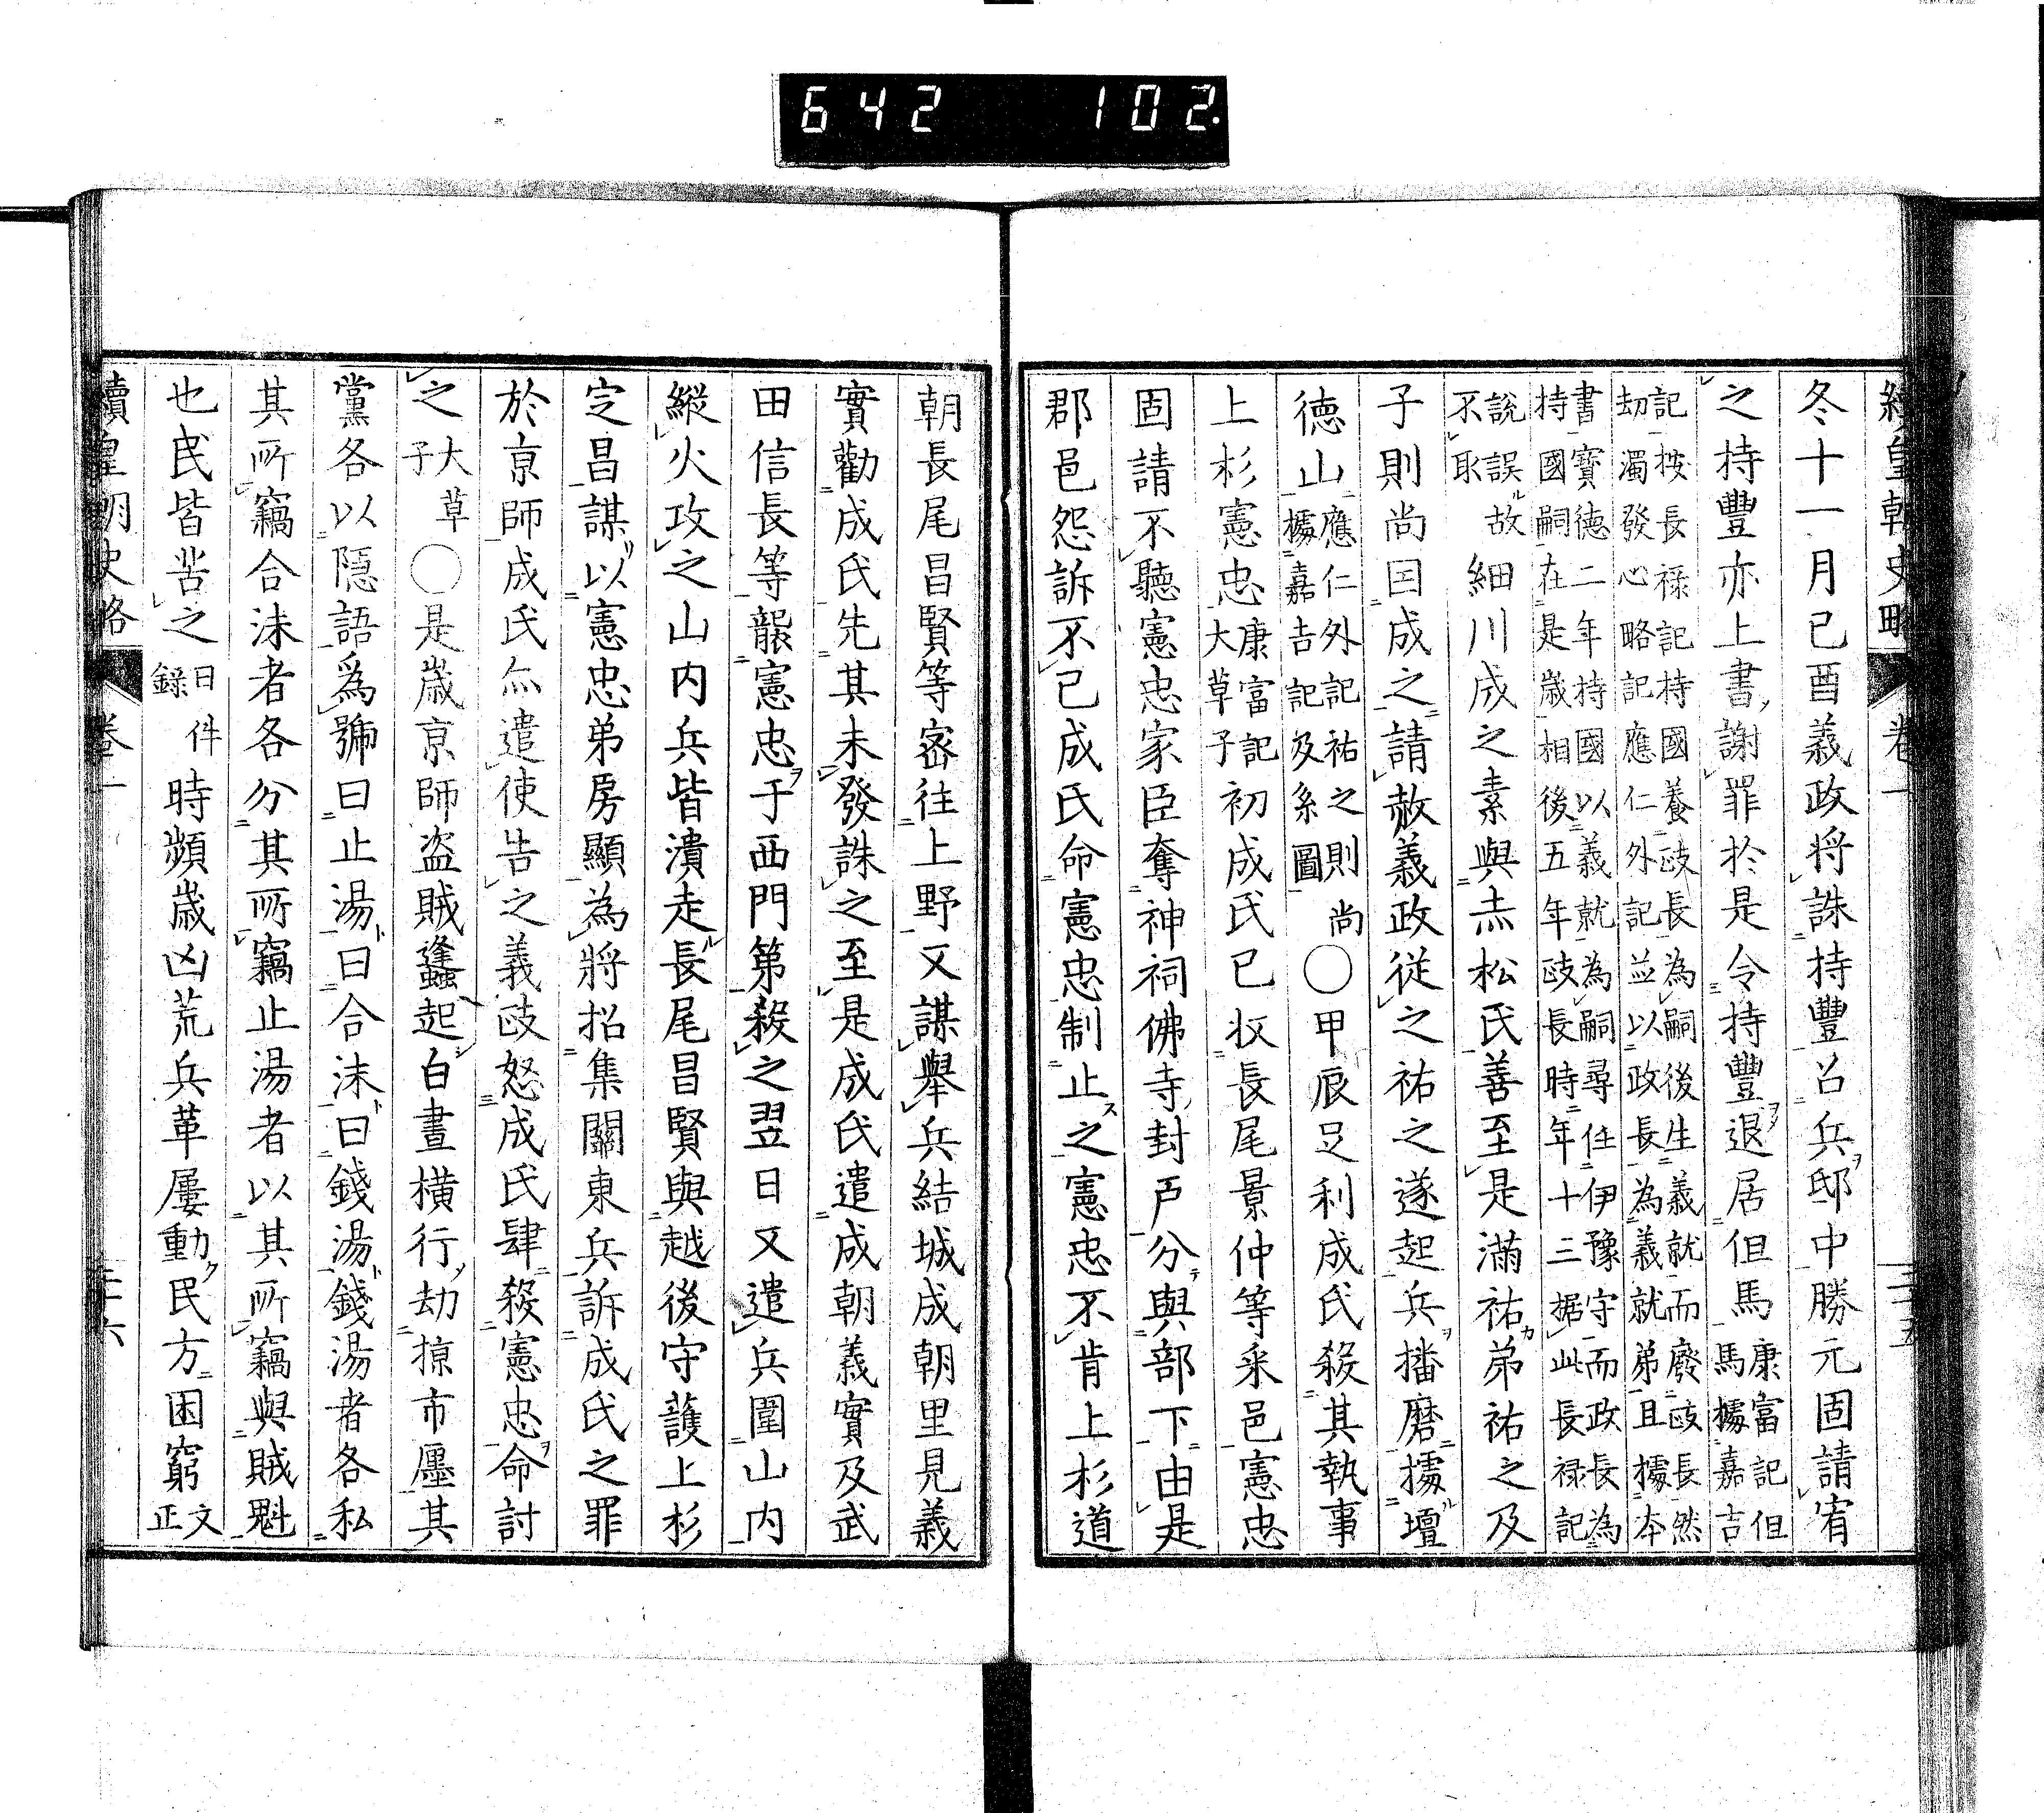 642 102.
續皇朝史略 卷一
冬十一月己酉義政将誅持豐召兵邸中勝元固請宥
之持豐亦上書謝罪於是令持豐退居但馬康富記但馬據嘉吉
記按長禄記持國養政長為嗣後生義就而廢政長然
劫濁發心略記應仁外記並以政長為義就弟且據本
書寶德二年持國以義就為嗣尋任伊豫守而政長為
持國嗣在是歳相後五年政長時年十三据此長禄記
說誤故不取 細川成之素與赤松氏善至是滿祐弟祐之及
子則尚因成之請赦義政従之祐之遂起兵播磨據壇
徳山應仁外記祐之則尚據嘉吉記及系圖〇甲辰足利成氏殺其執事
上杉憲忠康富記大草子初成氏已收長尾景仲等釆邑憲忠
固請不聽憲忠家臣奪神祠佛寺封戸分與部下由是
郡邑怨訴不已成氏命憲忠制止之憲忠不肯上杉道
朝長尾昌賢等密往上野又謀舉兵結城成朝里見義
實勸成氏先其未發誅之至是成氏遣成朝義實及武
田信長等襲憲忠于西門第殺之翌日又遣兵圍山内
縱火攻之山内兵皆潰走長尾昌賢與越後守護上杉
定昌謀以憲忠弟房顯為將招集關東兵訴成氏之罪
於京師成氏亦遣使告之義政怒成氏肆殺憲忠命討
之大草子〇是歳京師盗賊蠭起白晝横行劫掠市廛其
黨各以隱語爲號曰止湯曰合沫曰錢湯錢湯者各私
其所竊合沫者各分其所竊止湯者以其所竊與賊魁
也民皆苦之日件録時頻歳凶荒兵革屢動民方困窮文正
續皇朝史略 卷一 三十六